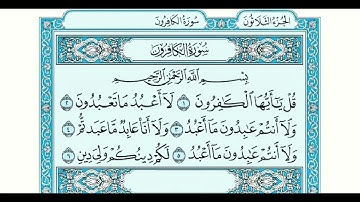 الجزء الثلاثون
سورة الكافرون
سورة الكافرون
بِسْمِ ٱللَّهِ ٱلرَّحْمَٰنِ ٱلرَّحِيمِ
قُلْ يَٰٓأَيُّهَا ٱلْكَٰفِرُونَ ١ لَآ أَعْبُدُ مَا تَعْبُدُونَ ٢
وَلَآ أَنتُمْ عَٰبِدُونَ مَآ أَعْبُدُ ٣ وَلَآ أَنَا۠ عَابِدٌ مَّا عَبَدتُّمْ ٤
وَلَآ أَنتُمْ عَٰبِدُونَ مَآ أَعْبُدُ ٥ لَكُمْ دِينُكُمْ وَلِىَ دِينِ ٦